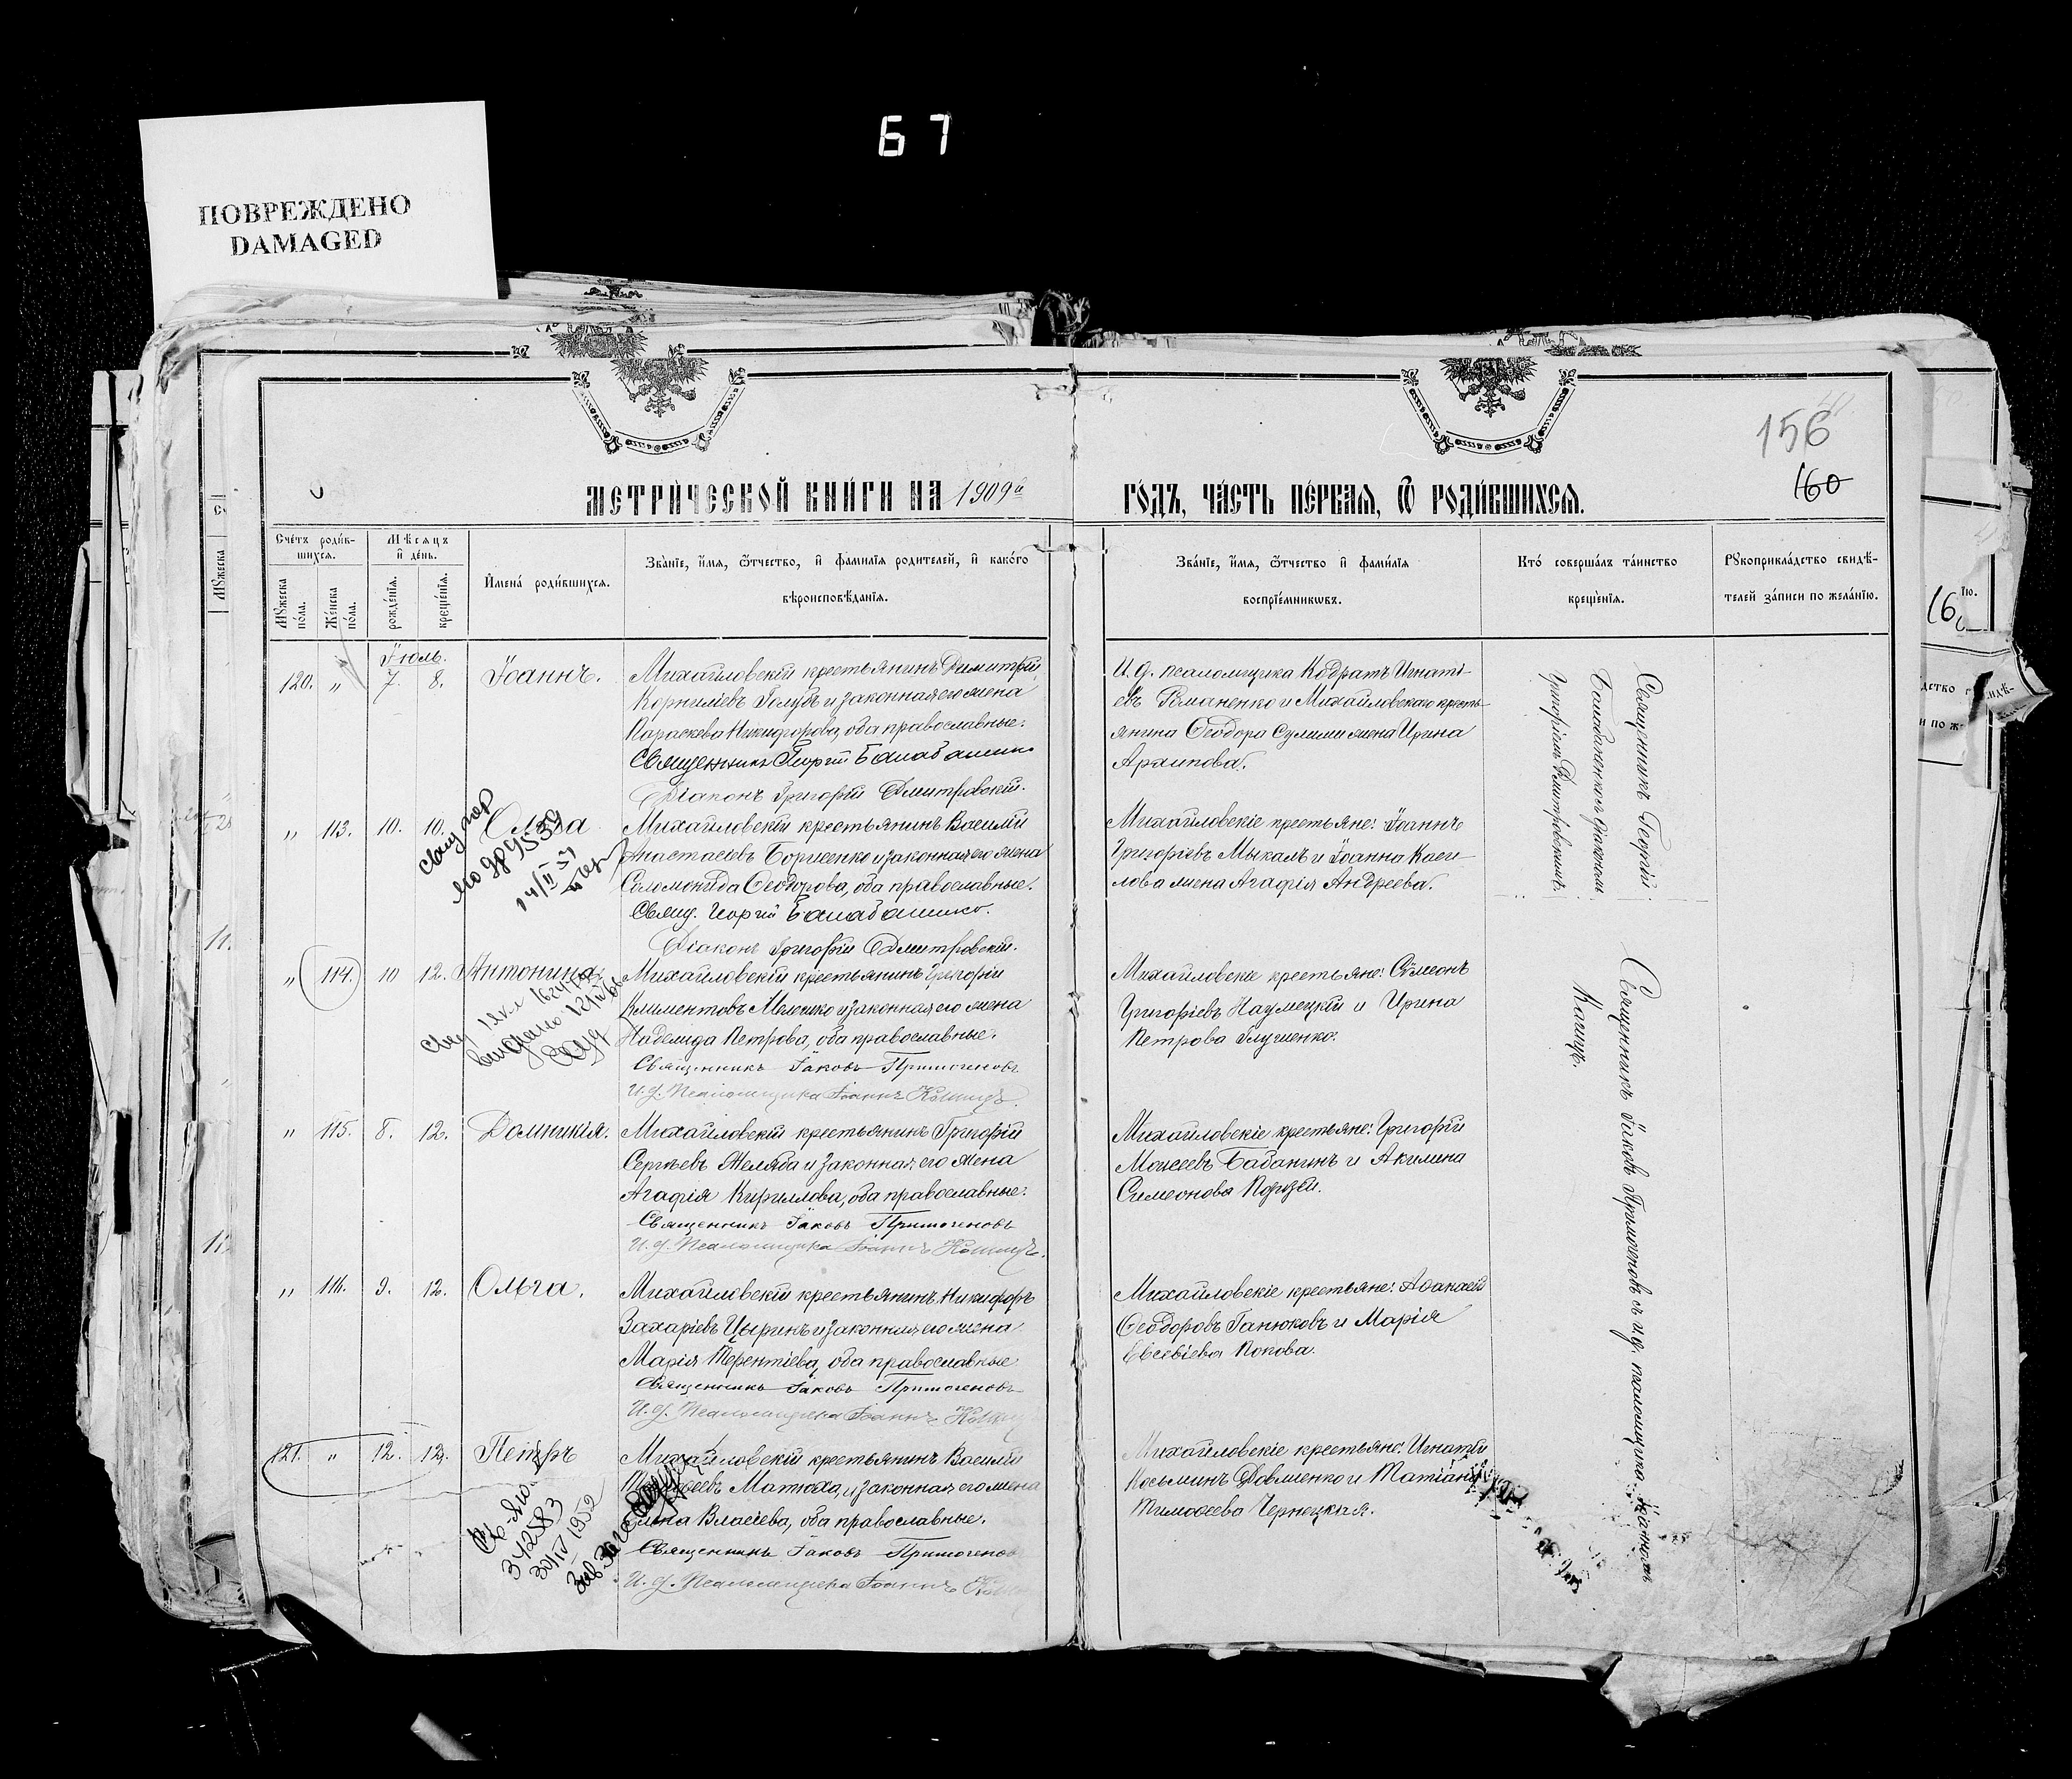 67
ПОВРЕЖДЕНО
DAMAGED
156
160
МЕТРИ́ЧЕСКОЙ КНИ́ГИ НА 1909й
ГО́ДЪ, ЧА́СТЬ ПЕ́РВАЯ, Ѿ РОДИ́ВШИХСЯ.
Сче́тъ роди́в-
шихся.
Мѣ́сяцъ
и҆ де́нь.
Мꙋ́жеска
по́ла.
Же́нска
по́ла.
рожде́нія.
креще́нія.
И҆мена̀ роди́вшихся.
Зва́ніе, и҆́мя, ѻ҆́тчество, и҆ фамилія родителей, и҆ како́го
вѣроисповѣ́данія.
Зва́ніе, и҆́мя, ѻ҆́тчество и҆ фами́лія
воспріе́мникѡвъ.
Кто̀ соверша́лъ та́инство
креще́нія.
Рꙋкоприкла́дство свидѣ́-
телей за́писи по жела́нію.
Іюль.
120. „ 7. 8. Іоаннъ.
Михайловскій крестьянинъ Димитрій
Корниліевъ Голубъ и законная его жена
Параскева Никифорова, оба православные.
Священникъ Георгій Балабаненко
Діаконъ Григорій Дмитровскій.
И. д. псаломщика Кодратъ Игнаті-
евъ Романенко и Михайловскаго кресть-
янина Ѳеодора Сулимы жена Ирина
Архипова.
Священникъ Георгій
Балабаненко съ діакономъ
Григоріемъ Дмитровскимъ.
„ 113. 10. 10. Ольга
Михайловскій крестьянинъ Василій
Анастасіевъ Борисенко и законная его жена
Соломонида Ѳеодорова, оба православные.
Свящ. Георгій Балабаненко.
Діаконъ Григорій Дмитровскій.
Михайловскіе крестьяне: Іоаннъ
Григоріевъ Мыкалъ и Іоанна
жена Агафія Андреева.
„ 114. 10 12. Антонина.
Михайловскій крестьянинъ Григорій
Климентовъ и законная его жена
Надежда Петрова, оба православные.
Священникъ Іаковъ Примогеновъ
И. д. Псаломщика Іоаннъ Кошицъ.
Михайловскіе крестьяне: Сѵмеонъ
Григоріевъ Наумецкій и Ирина
Петрова Глущенко.
Священникъ Іаковъ Примогеновъ съ и. д. псаломщика Іоанномъ
Кошицъ.
„ 115. 8. 12. Домникія.
Михайловскій крестьянинъ Григорій
Сергѣевъ Желяба и законная его жена
Агафія Кириллова, оба православные.
Священникъ Іаковъ Примогеновъ
И. д. Псаломщика Іоаннъ Кошицъ.
Михайловскіе крестьяне: Григорій
Моисеевъ Бабанинъ и Акилина
Симеонова
„ 116. 9. 12. Ольга.
Михайловскій крестьянинъ Никифоръ
Захаріевъ Цыринъ и законная его жена
Марія Терентіева, оба православные
Священникъ Іаковъ Примогеновъ
И. д. Псаломщика Іоаннъ
Михайловскіе крестьяне: Аѳанасій
Ѳеодоровъ Ганюковъ и Марія
Евсевіева Попова.
121. „ 12. 12. Петръ
Михайловскій крестьянинъ Василій
Матюха, и законная его жена
Елена Власіева, оба православные.
Священникъ Іаковъ Примогеновъ
И. д. Псаломщика Іоаннъ
Михайловскіе крестьяне: Игнатій
Косьминъ Довженко и Татіана
Тимоѳеева Чернецкая.
34283
30/IV 1952